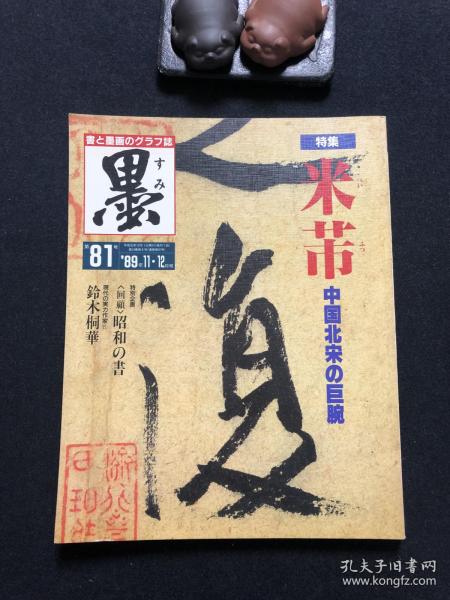 書と墨画のグラフ誌
墨
すみ
第81号
'89年11・12月号
特集
米芾
べい
ふつ
中国北宋の巨腕
特別企画
〈回顧〉昭和の書
現代の実力作家
鈴木桐華
復
孔夫子旧书网
www.kongfz.com